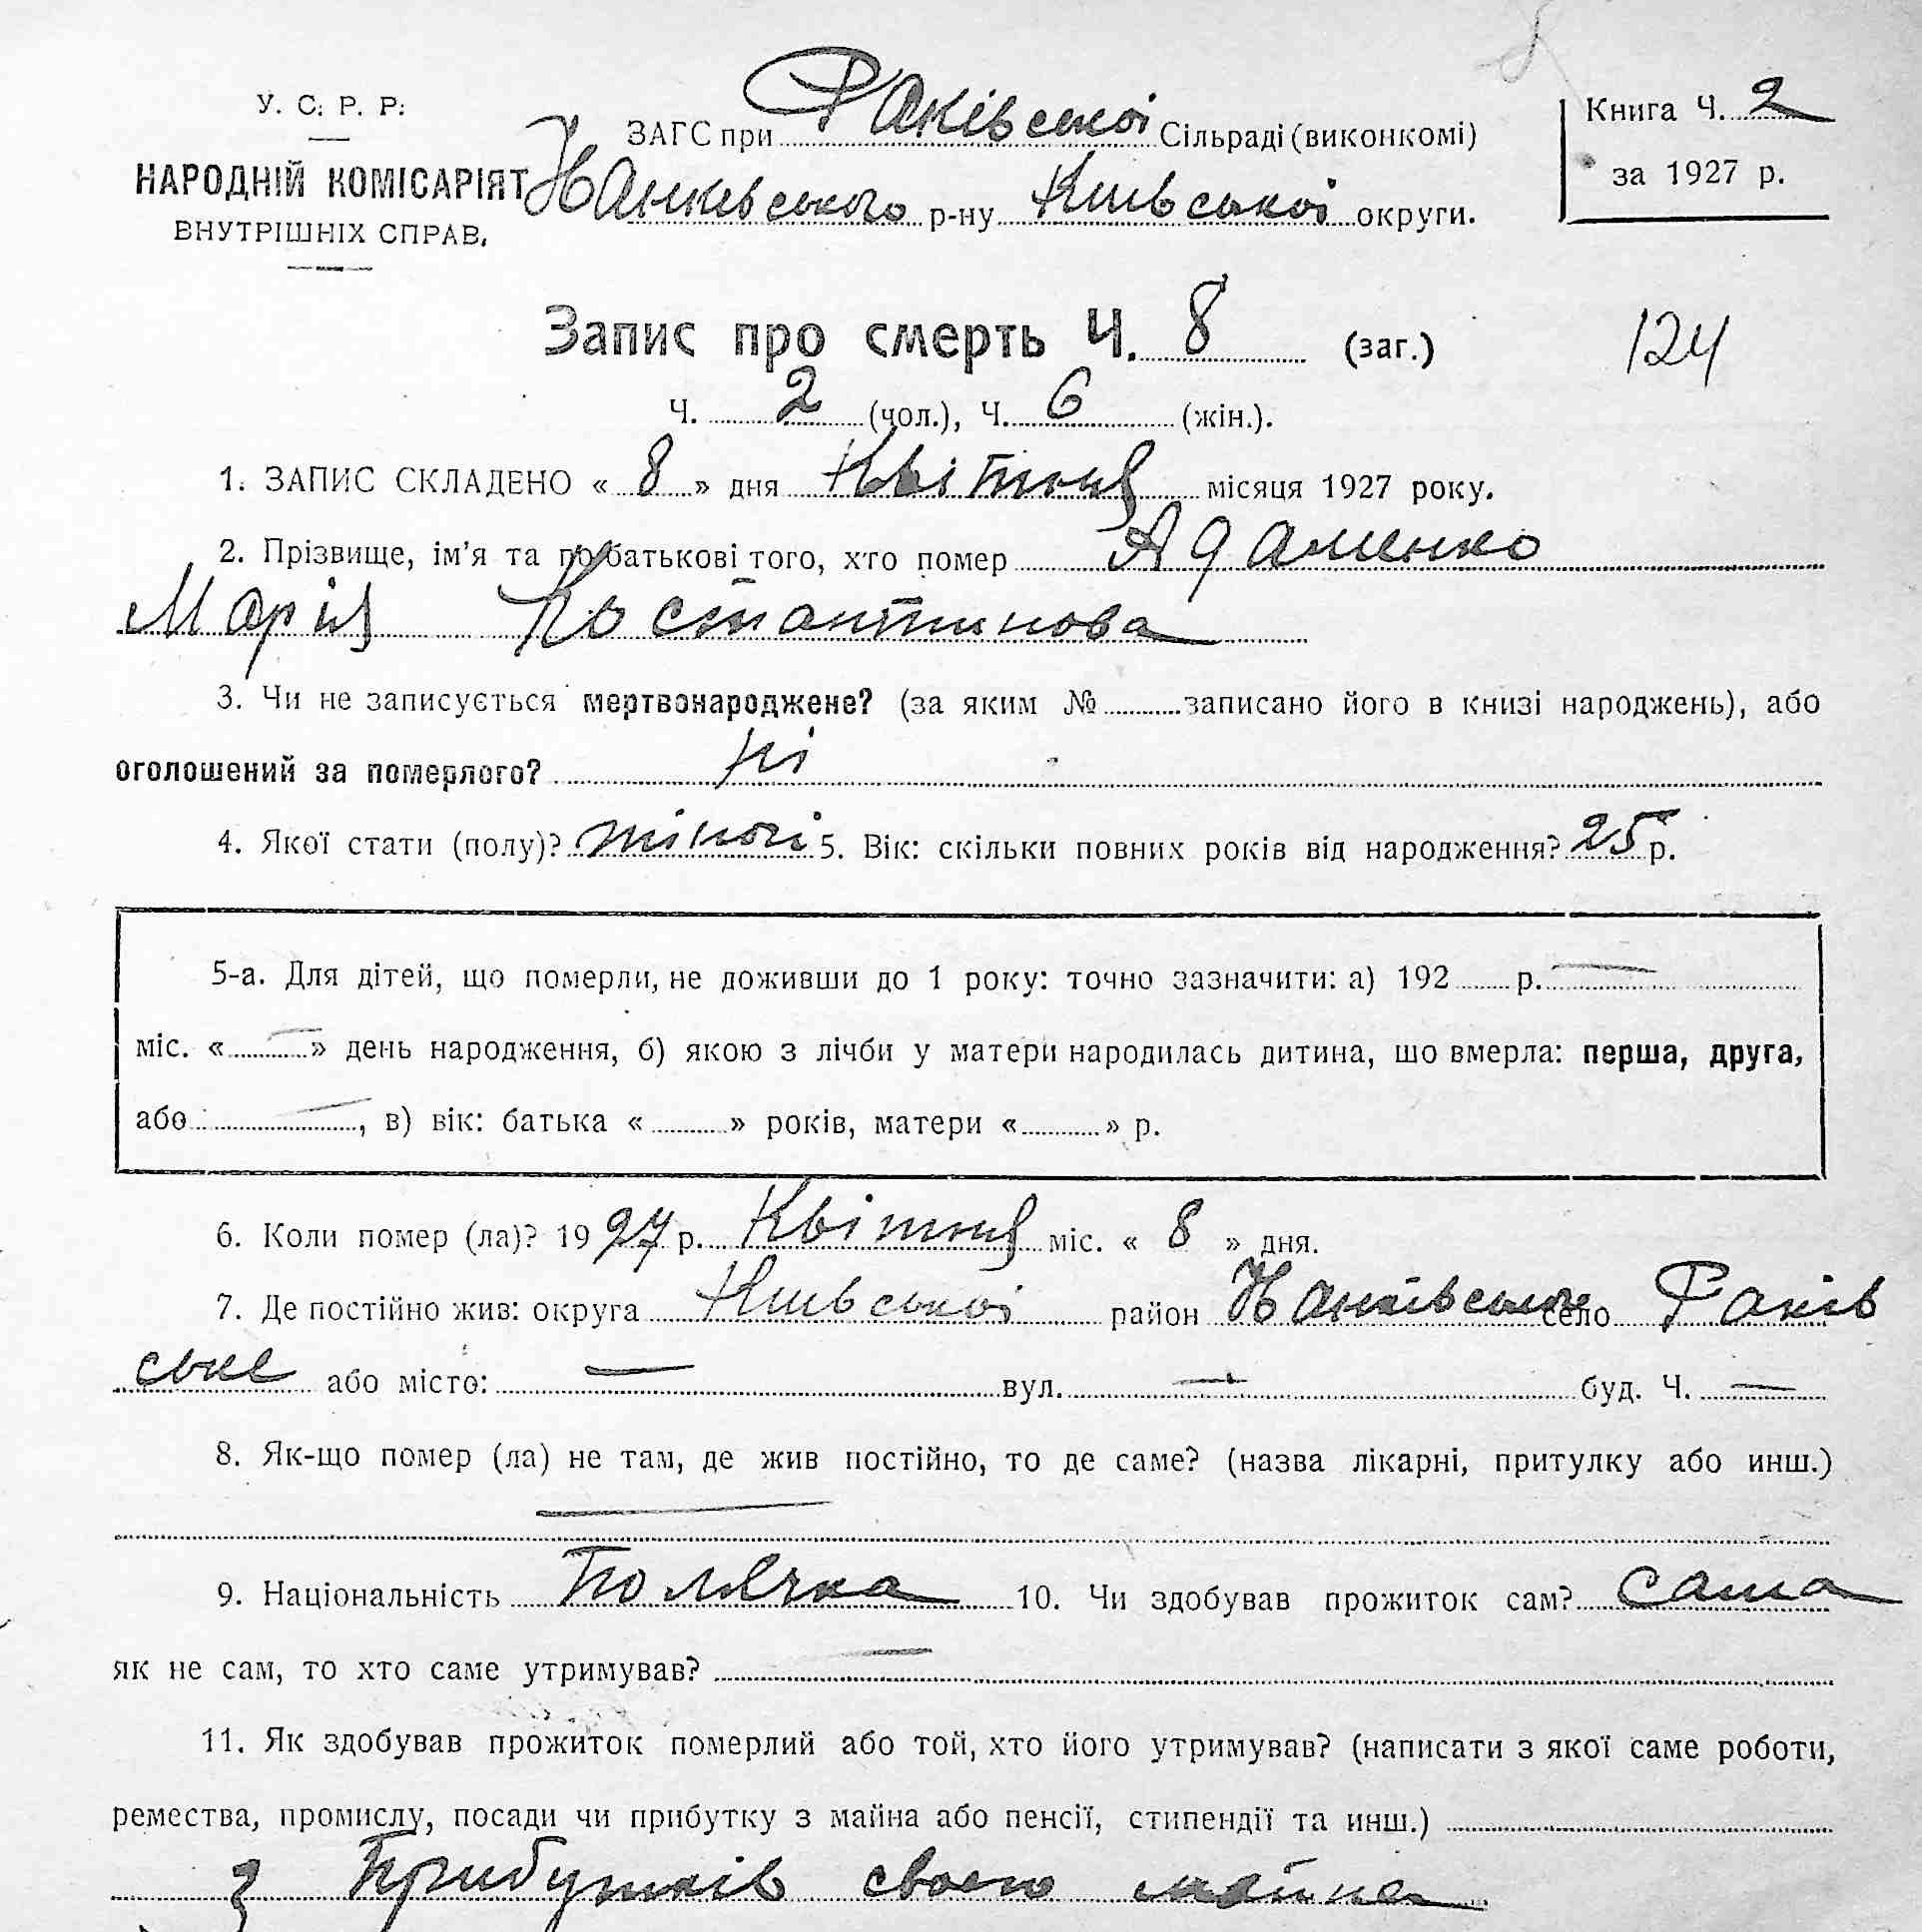 У. С. Р. Р.
НАРОДНІЙ КОМІСАРІЯТ
ВНУТРІШНІХ СПРАВ.
ЗАГС при Раківської Сільраді (виконкомі)
Ханківського р-ну Київської округи.
Книга Ч. 2
за 1927 р.
Запис про смерть Ч. 8 (заг.)
124
Ч. 2 (чол.), Ч. 6 (жін.).
1. ЗАПИС СКЛАДЕНО « 8 » дня Квітня місяця 1927 року.
2. Прізвище, ім'я та по батькові того, хто помер Адаменко
Марія Костантинова
3. Чи не записується мертвонароджене? (за яким № записано його в книзі народжень), або
оголошений за померлого? Ні
4. Якої стати (полу)? жіночі 5. Вік: скільки повних років від народження? 25 р.
5-а. Для дітей, що померли, не доживши до 1 року: точно зазначити: а) 192 р. —
міс. « — » день народження, б) якою з лічби у матери народилась дитина, що вмерла: перша, друга,
або —, в) вік: батька « » років, матери « » р.
6. Коли помер (ла)? 1927 р. Квітня міс. « 8 » дня.
7. Де постійно жив: округа Київської район Ханківське село Раків
ське або місто: — вул. — буд. Ч. —
8. Як-що помер (ла) не там, де жив постійно, то де саме? (назва лікарні, притулку або инш.)
—
9. Національність Полячка 10. Чи здобував прожиток сам? сама
як не сам, то хто саме утримував? —
11. Як здобував прожиток померлий або той, хто його утримував? (написати з якої саме роботи,
ремества, промислу, посади чи прибутку з майна або пенсії, стипендії та инш.)
з Прибутків своего майна